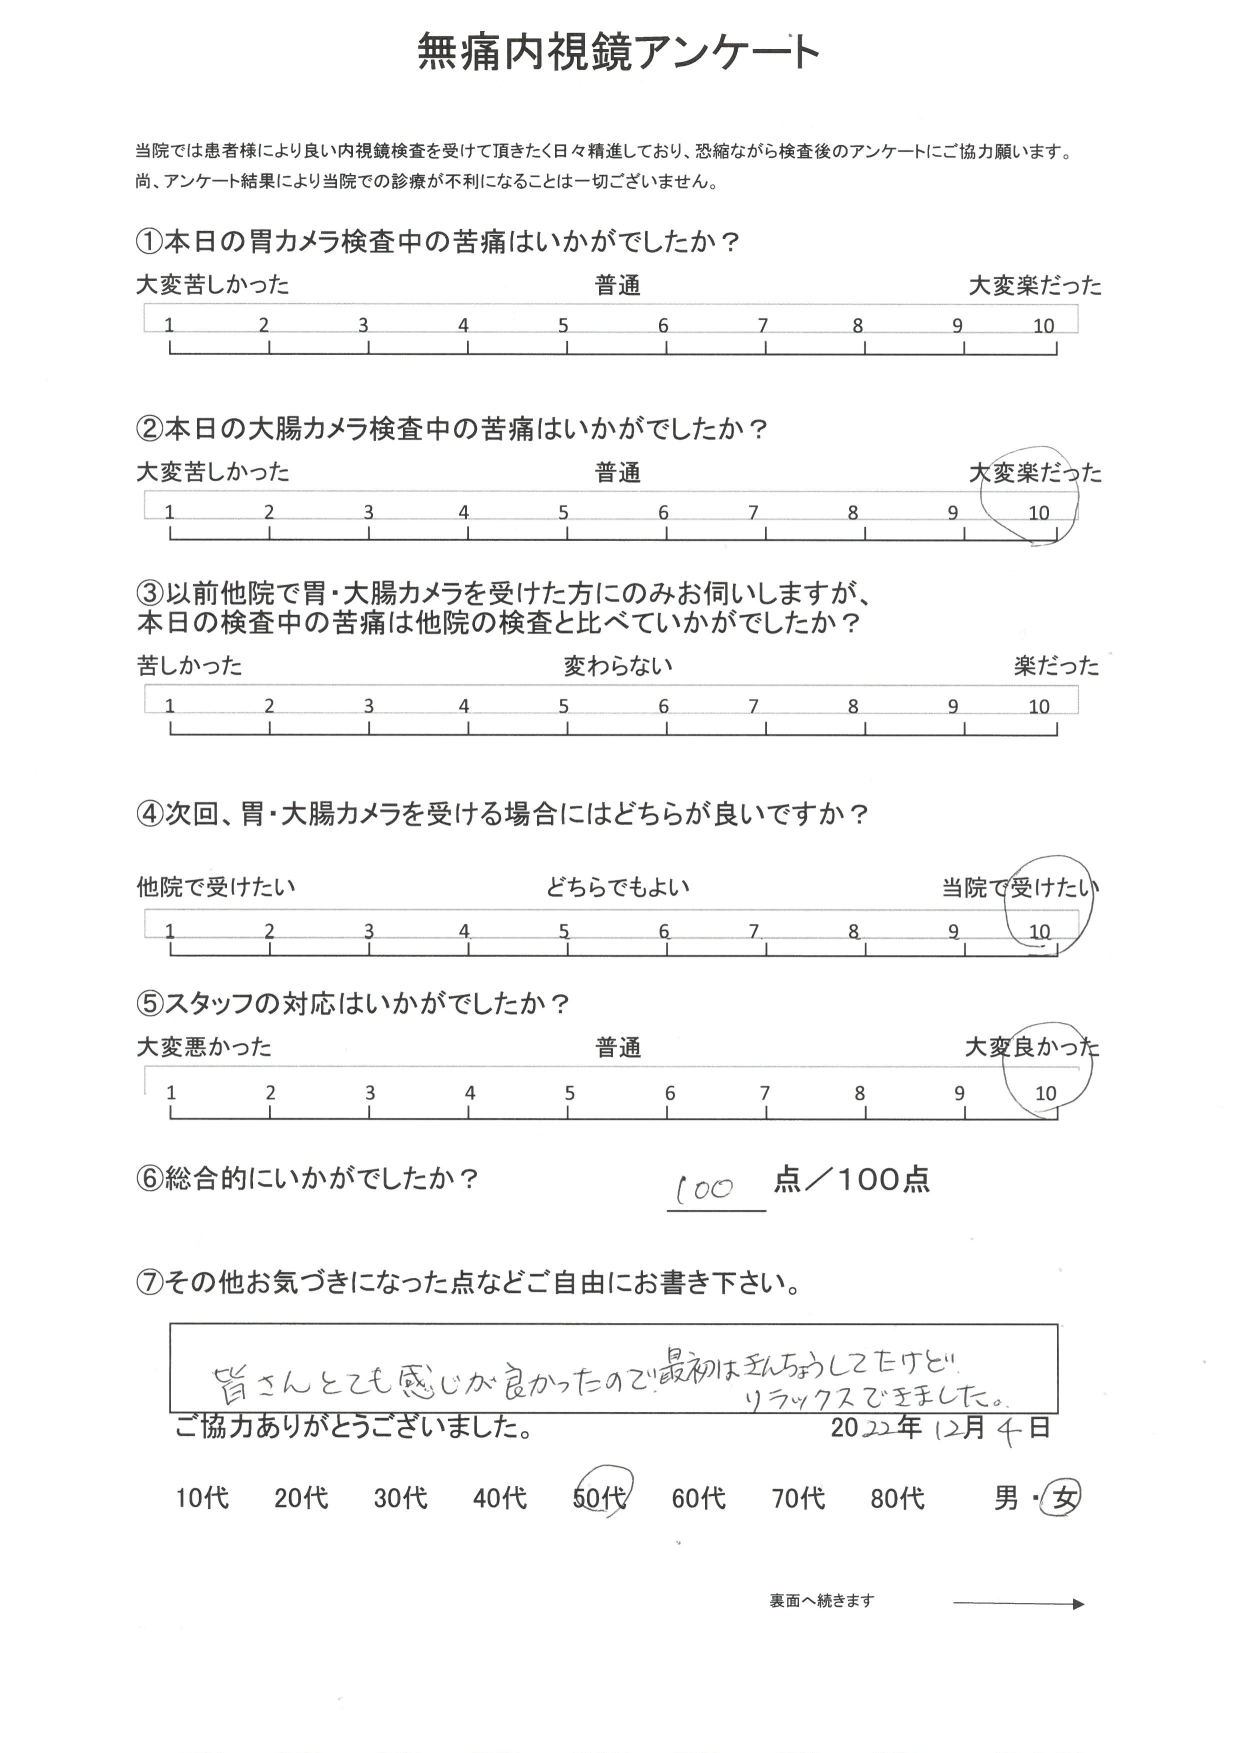 無痛内視鏡アンケート
当院では患者様により良い内視鏡検査を受けて頂きたく日々精進しており、恐縮ながら検査後のアンケートにご協力願います。
尚、アンケート結果により当院での診療が不利になることは一切ございません。
①本日の胃カメラ検査中の苦痛はいかがでしたか？
大変苦しかった 普通 大変楽だった
1 2 3 4 5 6 7 8 9 10
②本日の大腸カメラ検査中の苦痛はいかがでしたか？
大変苦しかった 普通 大変楽だった
1 2 3 4 5 6 7 8 9 10
③以前他院で胃・大腸カメラを受けた方にのみお伺いしますが、
本日の検査中の苦痛は他院の検査と比べていかがでしたか？
苦しかった 変わらない 楽だった
1 2 3 4 5 6 7 8 9 10
④次回、胃・大腸カメラを受ける場合にはどちらが良いですか？
他院で受けたい どちらでもよい 当院で受けたい
1 2 3 4 5 6 7 8 9 10
⑤スタッフの対応はいかがでしたか？
大変悪かった 普通 大変良かった
1 2 3 4 5 6 7 8 9 10
⑥総合的にいかがでしたか？ 100 点／100点
⑦その他お気づきになった点などご自由にお書き下さい。
皆さんとても感じが良かったので最初はきんちょうしてたけど
リラックスできました。
ご協力ありがとうございました。 2022年 12月 4日
10代 20代 30代 40代 50代 60代 70代 80代 男・女
裏面へ続きます